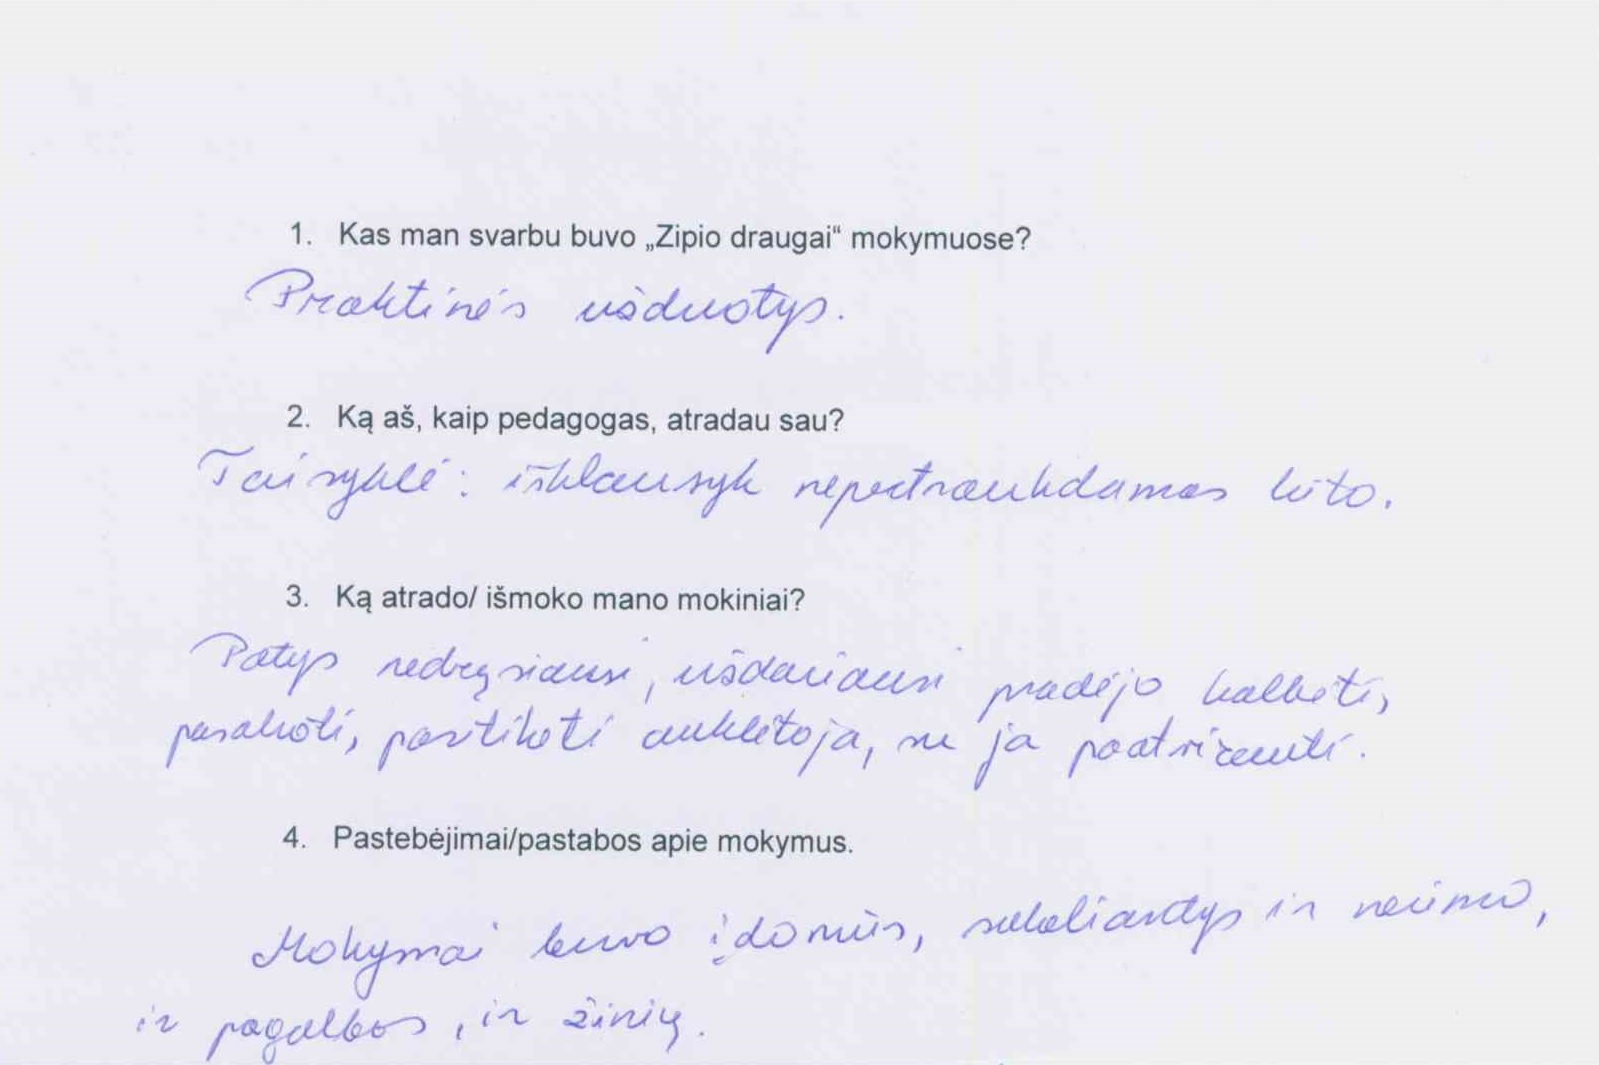 1. Kas man svarbu buvo „Zipio draugai“ mokymuose?
Praktinės užduotys.
2. Ką aš, kaip pedagogas, atradau sau?
Taisyklė: išklausyk nepertraukdamas kito.
3. Ką atrado/ išmoko mano mokiniai?
Patys nedrąsiausi, uždariausi pradėjo kalbėti,
pasakoti, pasitikėti auklėtoja, su ja
4. Pastebėjimai/pastabos apie mokymus.
Mokymai buvo įdomūs, suteliantys ir nerimo,
ir pagalbos, ir žinių.